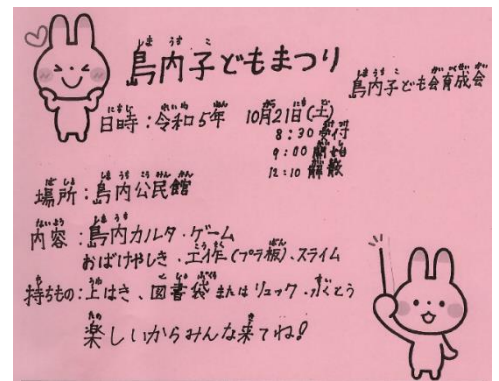 島内子どもまつり
島内子ども会育成会
日時：令和5年 10月21日(土)
8:30 受付
9:00 開始
12:10 解散
場所：島内公民館
内容：島内カルタ・ゲーム
おばけやしき・工作(プラ板)・スライム
持ちもの：上はき、図書袋 または リュック・水とう
楽しいからみんな来てね!